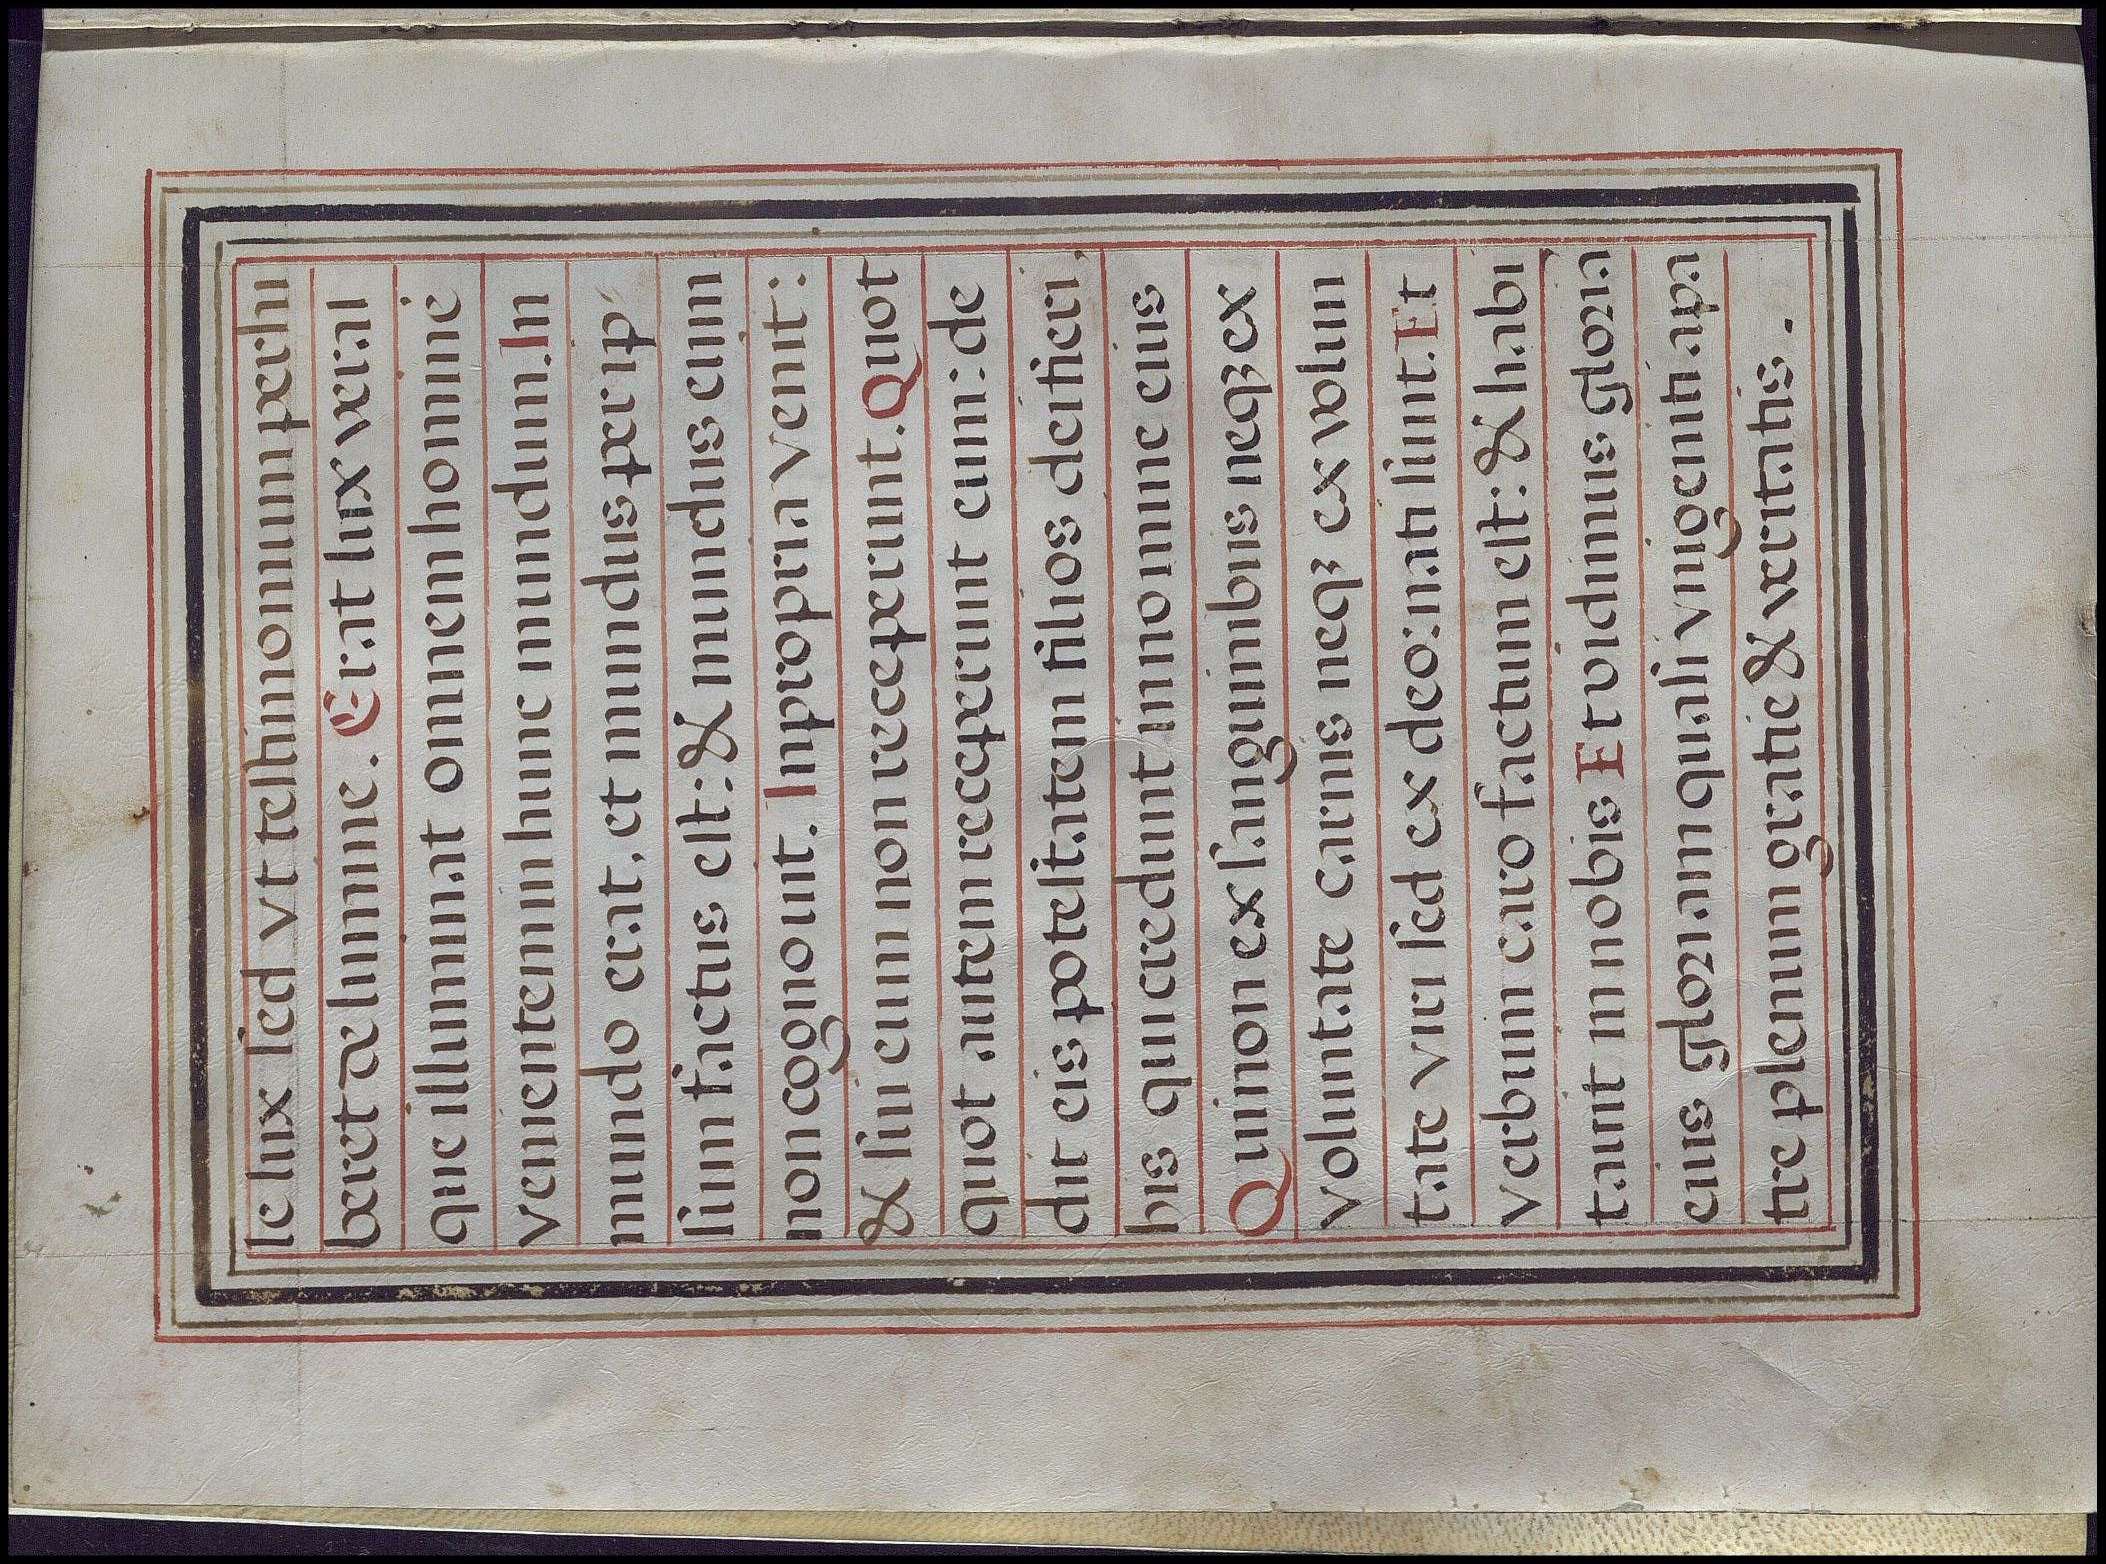 le lux sed vt testimonium perhi
beret de lumine. Erat lux vera
que illuminat omnem hominē
venientem in hunc mundum. In
mundo erat, et mundus per ip⸗
sum factus est: & mundus eum
non cognouit. In propria venit:
& sui eum non receperunt. Quot
quot autem receperunt eum: de
dit eis potestatem filios dei fieri,
his qui credunt in nomine eius
Qui non ex sanguinibus neqꝫ ex
voluntate carnis neqꝫ ex volun
tate viri sed ex deo: nati sunt. Et
verbum caro factum est: & habi
tauit in nobis Et vidimus gloria
eius gloriam quasi vnigeniti a pa
tre plenum gratie & veritatis.